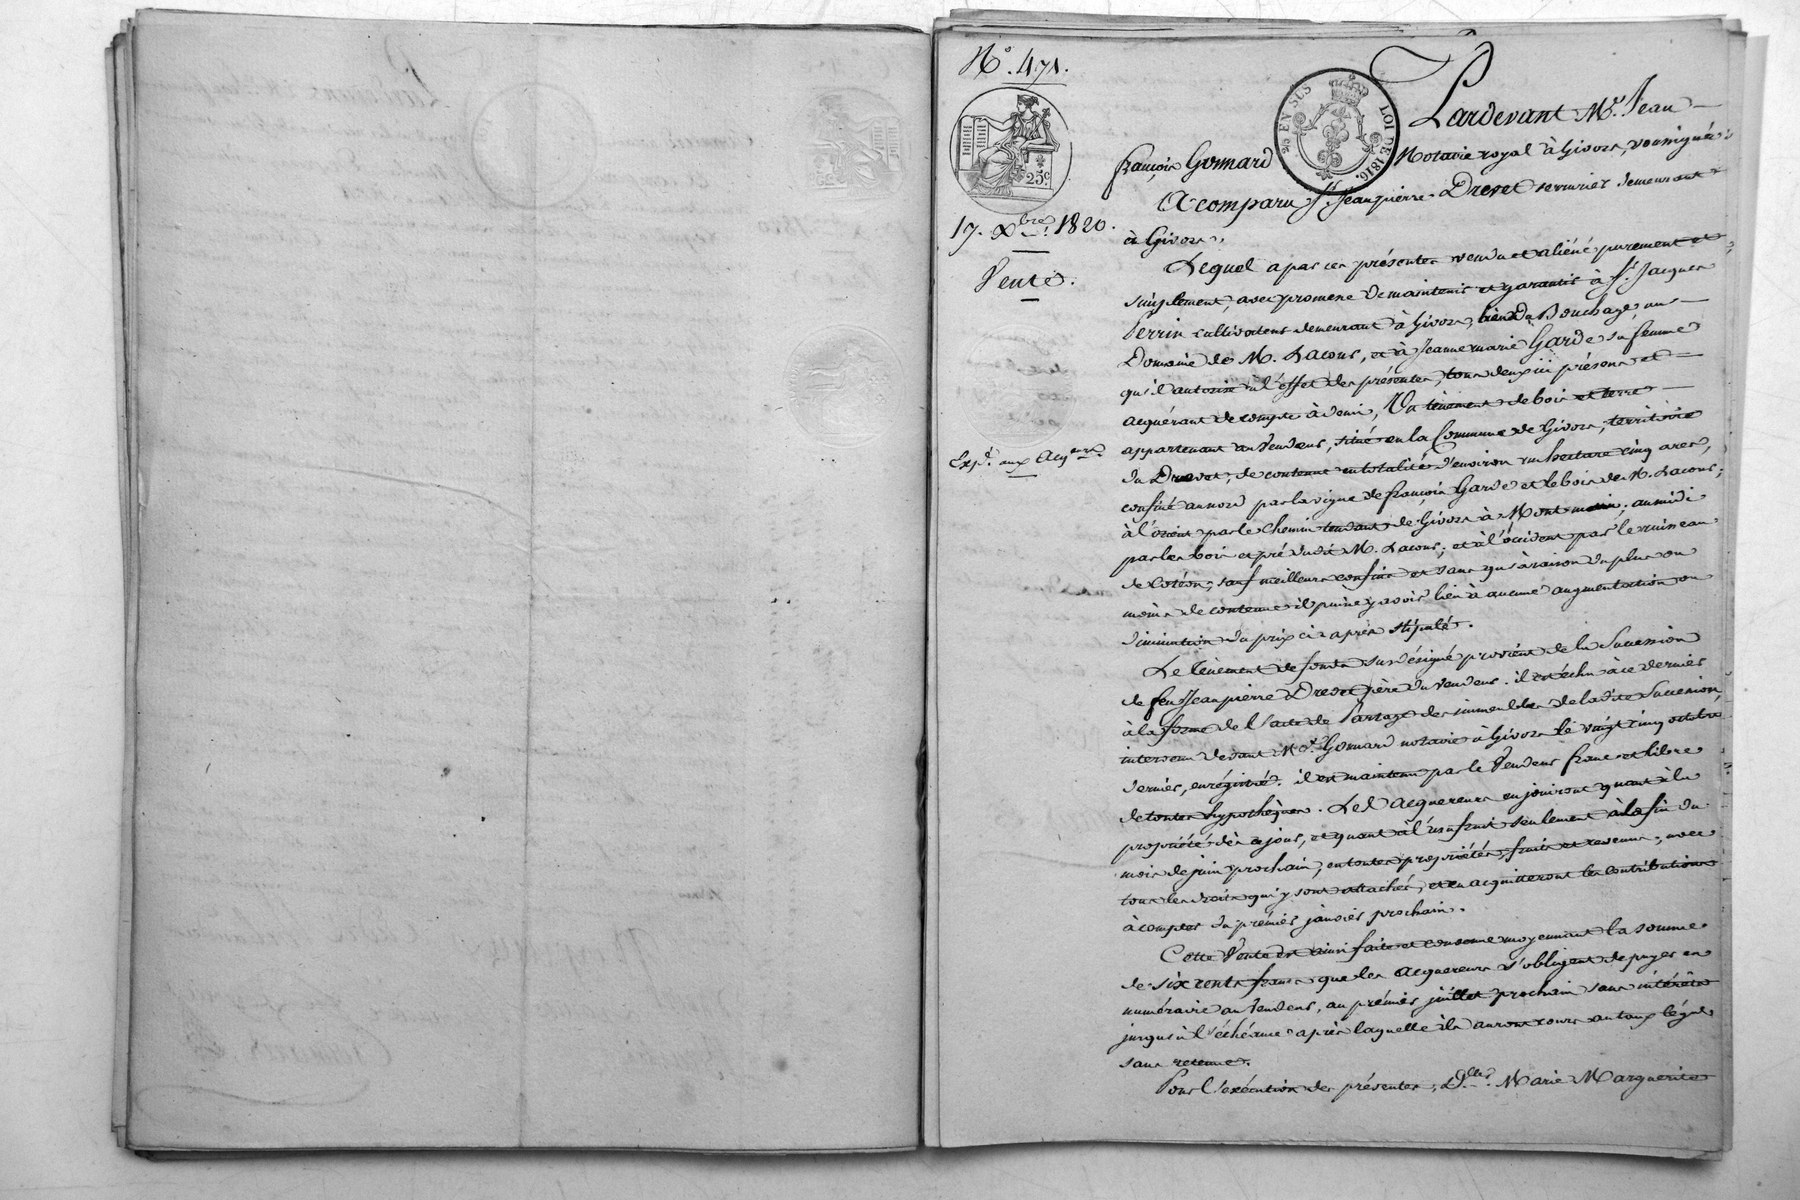 N.° 471.
25 EN SUS
LOI DE 1816.
25c
17. Xbre 1820.
Vente.
Expd. aux Acqrs.
Pardevant Me. Jean
françois Gonnard Notaire royal à Givors, soussigné
A comparu Sr. Jean pierre Drevet serrurier demeurant
à Givors.
Lequel a par ces présentes vendu et aliéné purement et
simplement, avec promesse de maintenir et garantir à Sr. Jacques
Perrin cultivateur demeurant à Givors, lieu du Bouchage, au
Domaine de M. Lacour, et à Jeanne marie Garde sa femme
qu'il autorise à l'effet des présentes, tous deux ici présens et
acquérant de compte à demi, Un tènement de bois et terre
appartenant au Vendeur, situé en la Commune de Givors, territoire
du Drevet, de contenue en totalité d'environ un hectare cinq ares,
confiné au nord par la vigne de françois Garde et le bois de M. Lacour;
à l'orient par le Chemin tendant de Givors à Mont ; au midi
par les bois et pré dudit M. Lacour; et à l'occident par le ruisseau
de Cotéon; sauf meilleurs confins et sans qu'à raison du plus ou
moins de contenue il puisse y avoir lieu à aucune augmentation ou
diminution du prix ci-après stipulé.
Le tènement de fonds susdésigné provient de la Succession
de feu Jean pierre Drevet père du vendeur. il est échu à ce dernier
à la forme de l'acte de Partage des immeubles de ladite Succession,
intervenu devant Me. Gonnard notaire à Givors le vingt cinq octobre
dernier, enrégistré. il est maintenu par le Vendeur franc et libre
de toutes hypothèques. Les Acquereurs en jouiront quant à la
propriété dès ce jour, et quant à l'usufruit seulement à la fin du
mois de juin prochain, en toutes propriétés, fruits et revenus, avec
tous les droits qui y sont attachés, et en acquitteront les contributions
à compter du prémier janvier prochain.
Cette Vente est ainsi faite et consentie moyennant la somme
de six cents francs que les Acquereurs s'obligent de payer en
numéraire au Vendeur, au prémier juillet prochain sans intérêts
jusqu'à l'échéance après laquelle ils auront cours au taux légal
sans retenue.
Pour l'exécution des présentes, Dlle. Marie Marguerite